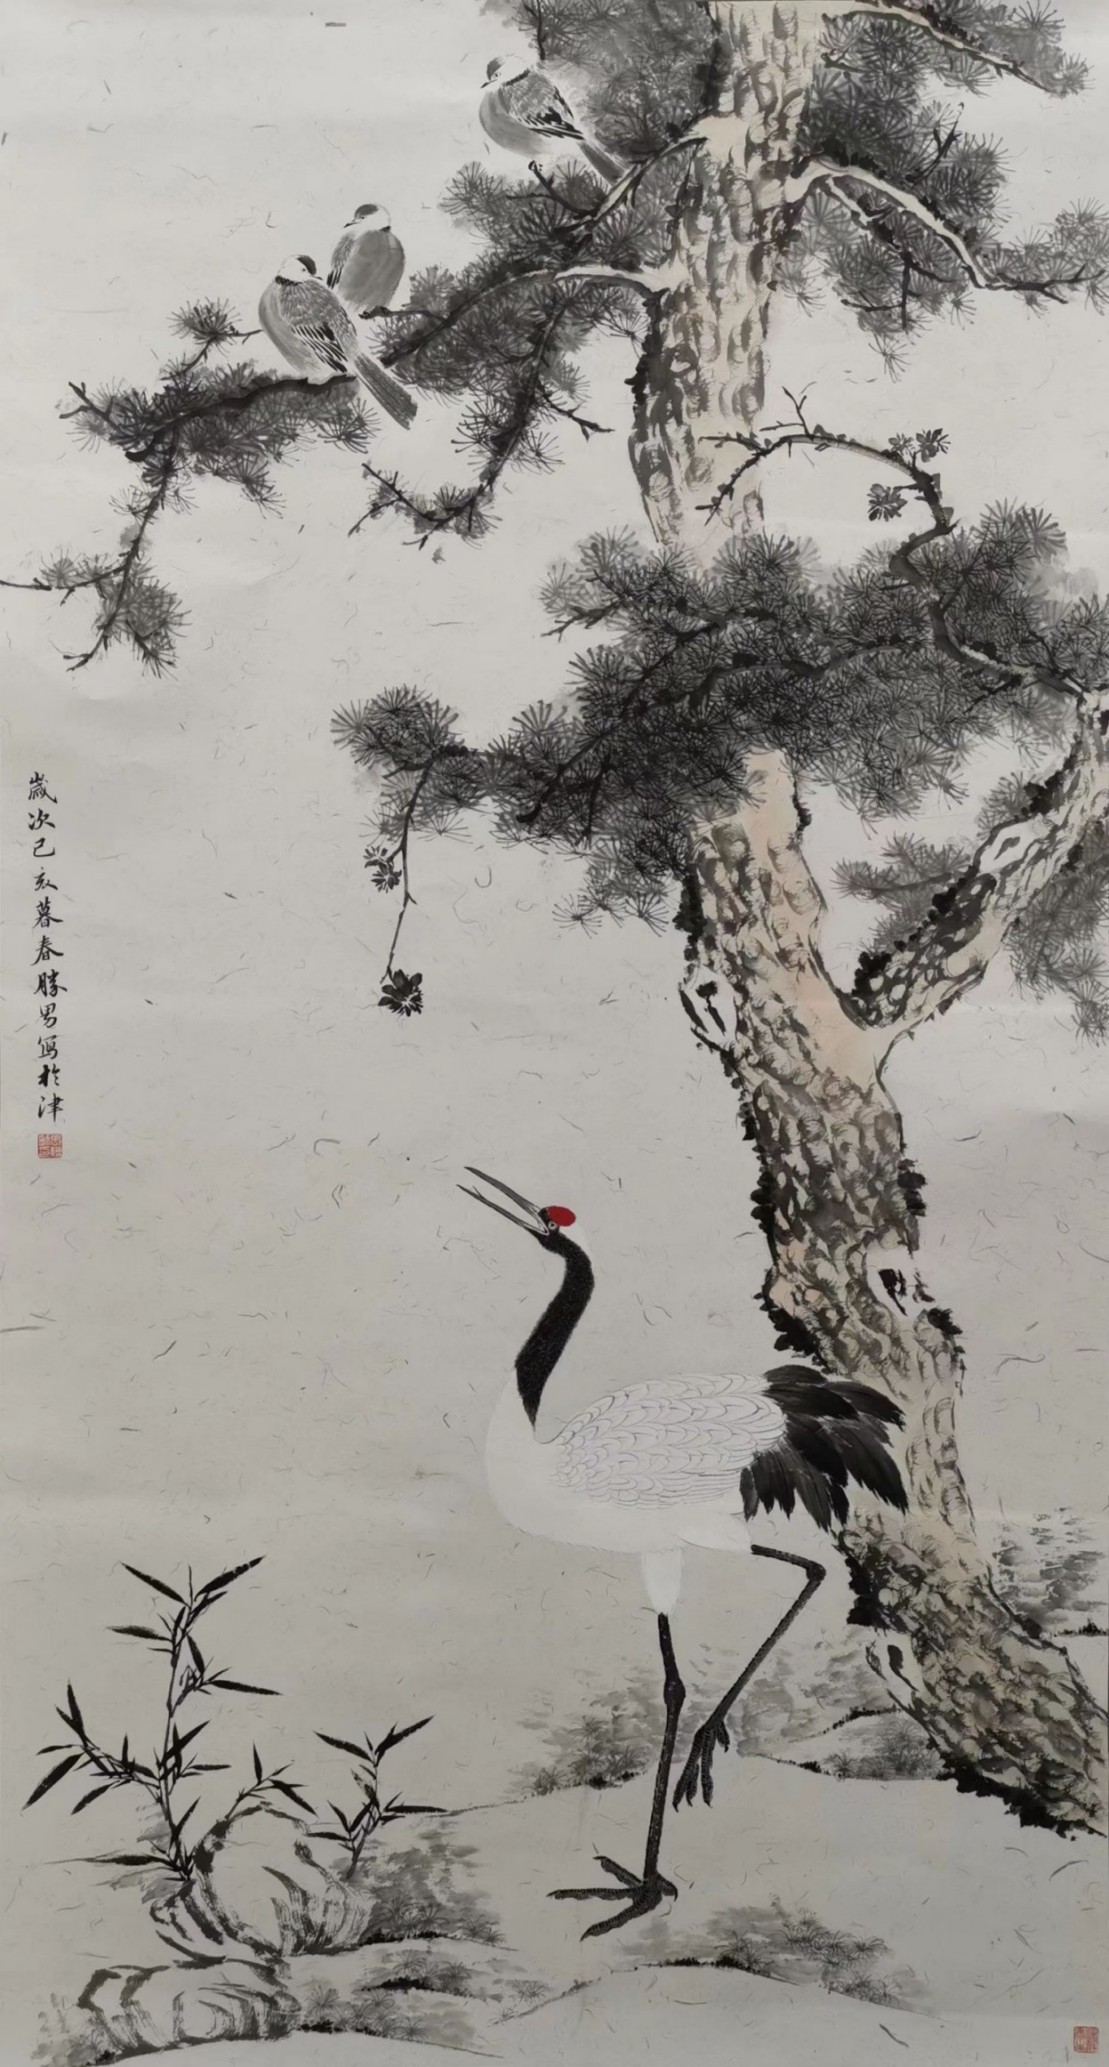 歲次己亥暮春勝男寫於津